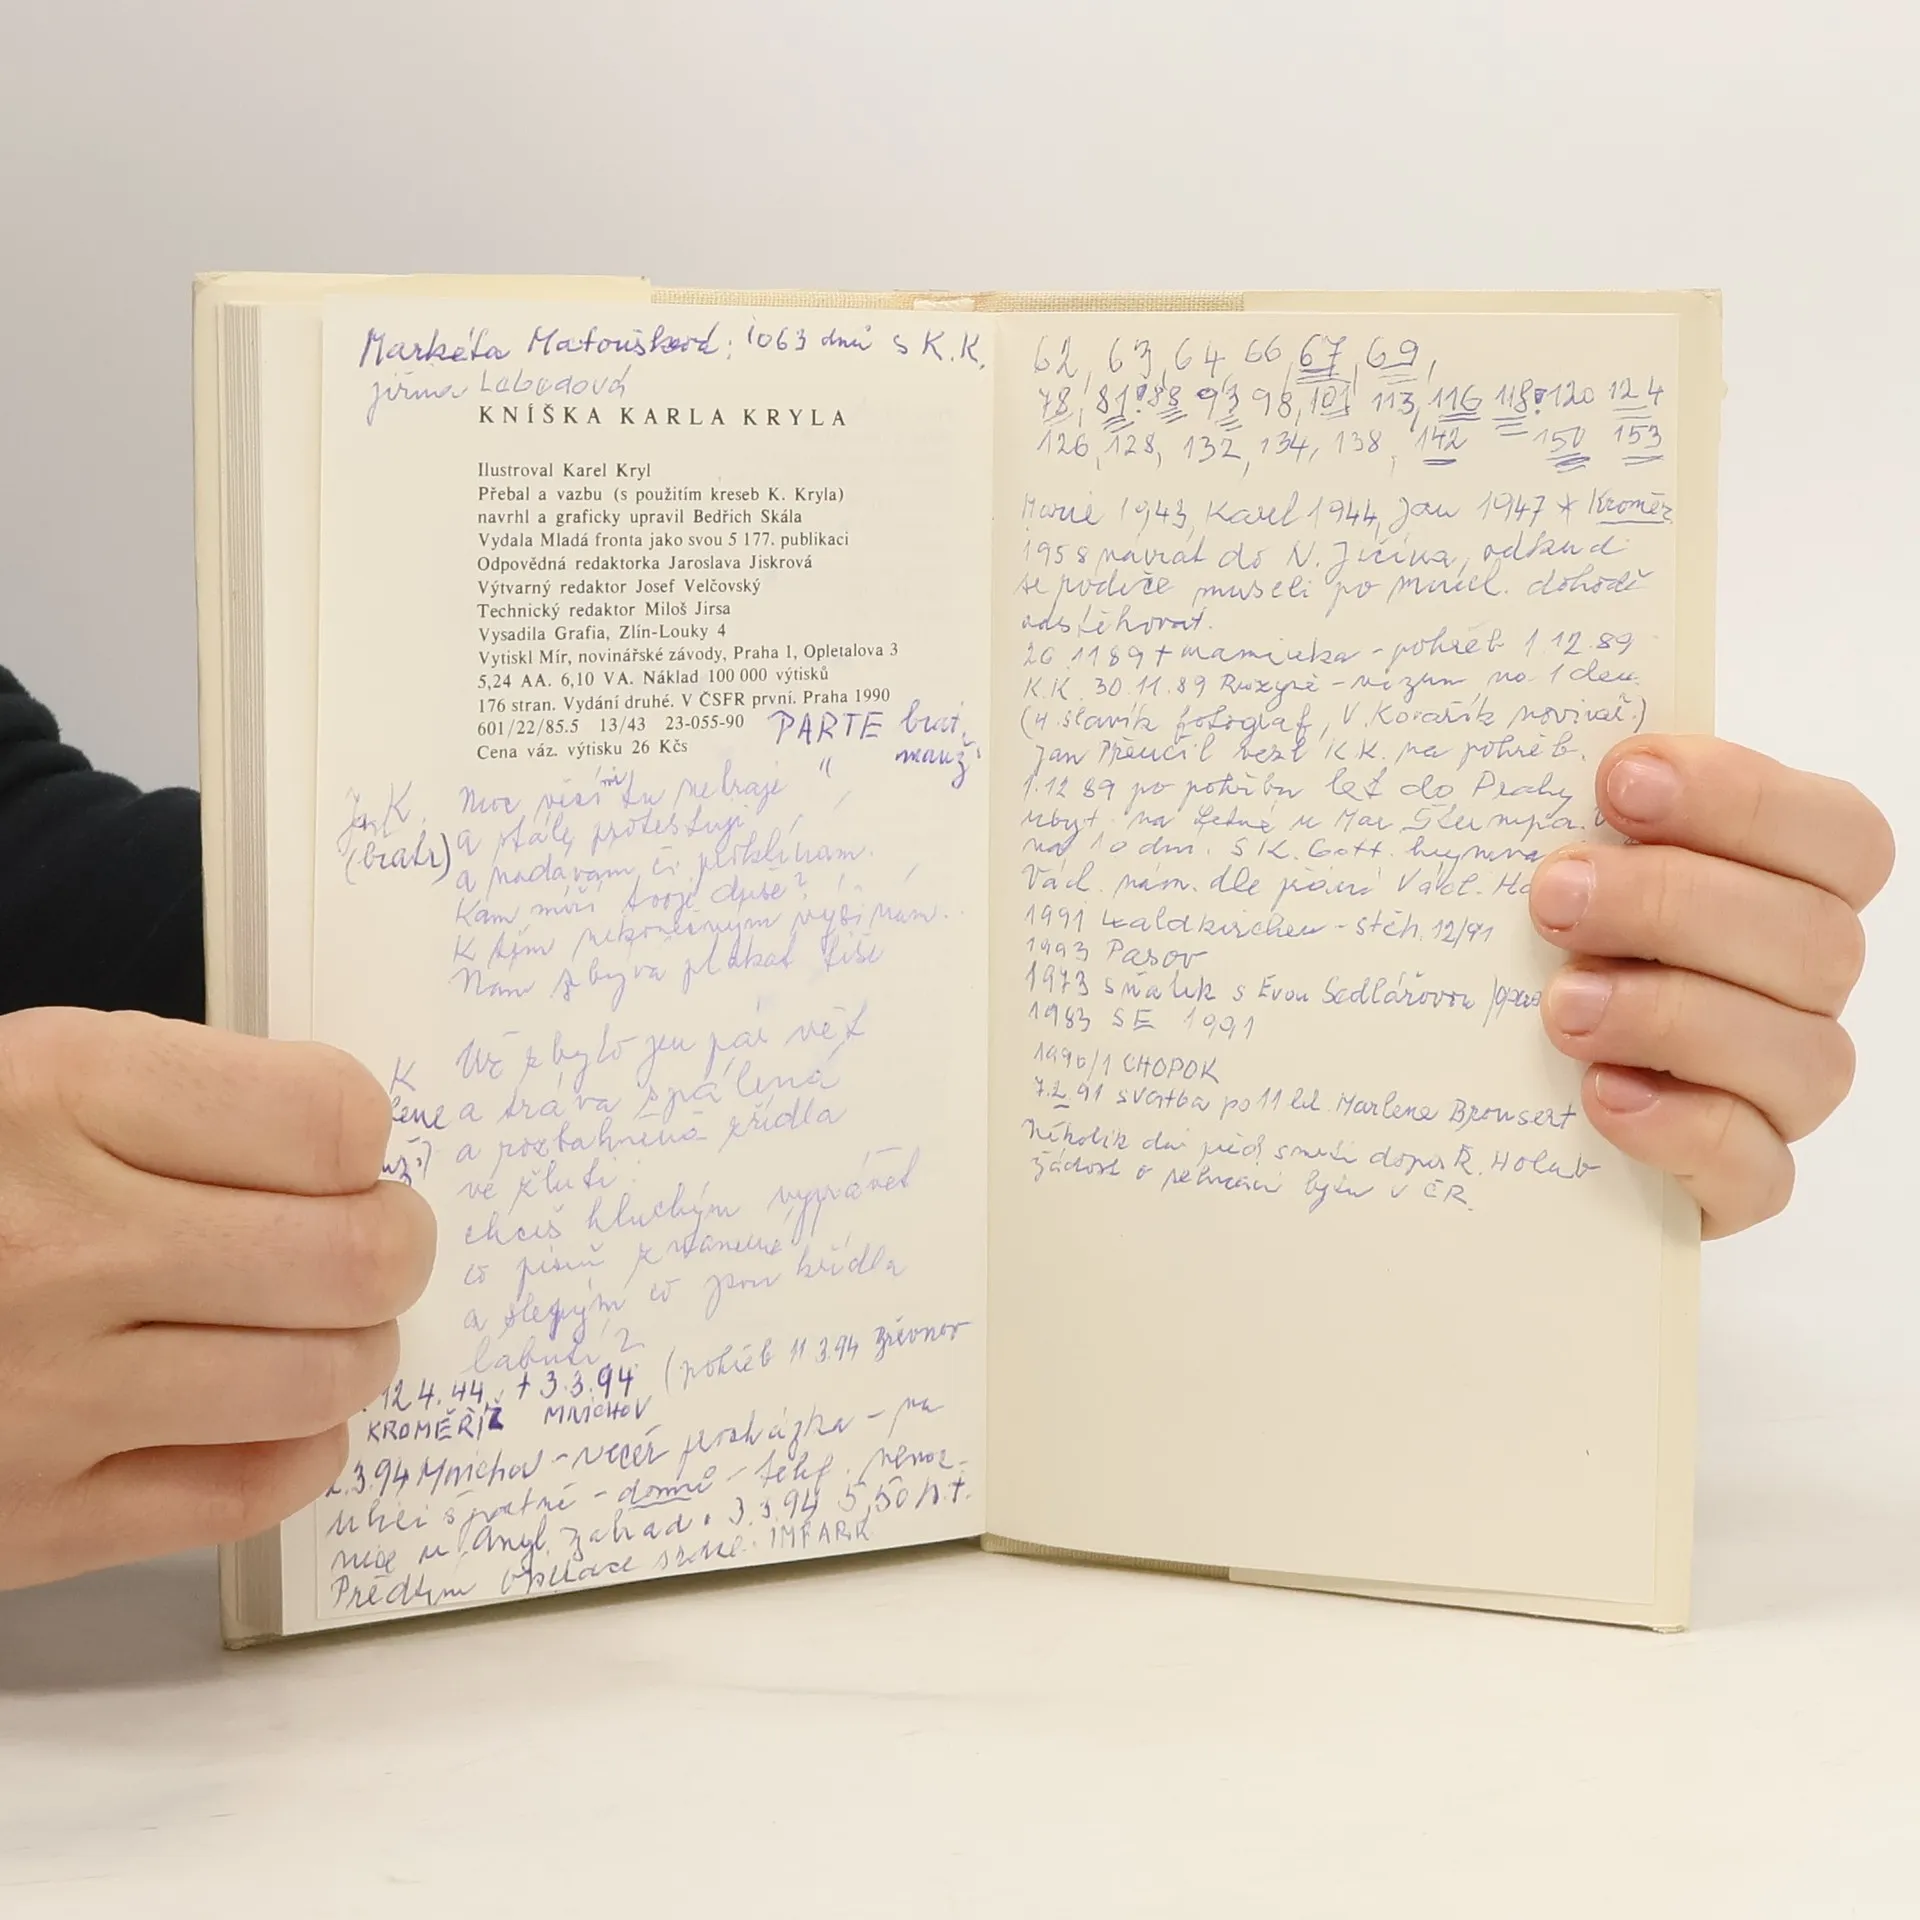 Markéta Matoušková: 1063 dnů s K.K.
Jiřina Labodová
KNÍŠKA KARLA KRYLA
Ilustroval Karel Kryl
Přebal a vazbu (s použitím kreseb K. Kryla)
navrhl a graficky upravil Bedřich Skála
Vydala Mladá fronta jako svou 5 177. publikaci
Odpovědná redaktorka Jaroslava Jiskrová
Výtvarný redaktor Josef Velčovský
Technický redaktor Miloš Jirsa
Vysadila Grafia, Zlín-Louky 4
Vytiskl Mír, novinářské závody, Praha 1, Opletalova 3
5,24 AA. 6,10 VA. Náklad 100 000 výtisků
176 stran. Vydání druhé. V ČSFR první. Praha 1990
601/22/85.5 13/43 23-055-90
Cena váz. výtisku 26 Kčs
PARTE brat,
manž.
Jan K. Moc věcí tu nehraje
(bratr) a stále protestuji
a nadávám či proklínám.
Kam míří tvoje duše?
K těm nekonečným výšinám..
Nám zbývá plakat tiše
K Už zbylo jen pár vět
lene a tráva spálená
a roztahnená křídla
ve žluti.
chceš hluchým vyprávět
co písní znamená
a slepým co jsou křídla
labutí?
12.4.44, + 3.3.94 (pohřeb 11.3.94 Břevnov
KROMĚŘÍŽ MNICHOV
.3.94 Mnichov - večer procházka - na
ulici špatně - domů - telef. nemoc-
nice u Angl. zahrad. 3.3.94 5,50 h. +.
Předtím operace srdce. INFARK
62, 63, 64, 66, 67, 69,
78, 81! 88 93 98, 101 113, 116 118! 120 124
126, 128, 132, 134, 138, 142 150 153
Marie 1943, Karel 1944, Jan 1947 * Kroměř
1958 návrat do N. Jičína, odkud
se rodiče museli po Mnich. dohodě
odstěhovat.
20.11 89 + maminka - pohřeb 1.12.89
K.K. 30.11.89 Ruzyně - vízum na 1 den
(H. Slavík fotograf, V. Kovařík novinář.)
Jan Přeučil vezl K.K. na pohřeb.
1.12 89 po pohřbu let do Prahy
ubyt. na Letné u Mar. Štempa.
na 10 dní. S K. Gott. hymna
Václ. nám. dle přání Václ. Ha
1991 Waldkirchen - stěh. 12/91
1993 Pasov
1973 sňatek s Evou Sedlářovou
1983 SE 1991
1990/1 CHOPOK
7.2.91 svatba po 11 let. Marlene Bronsert
Několik dní před smrtí dopis Ř. Holub
žádost o sehnání bytu v ČR.